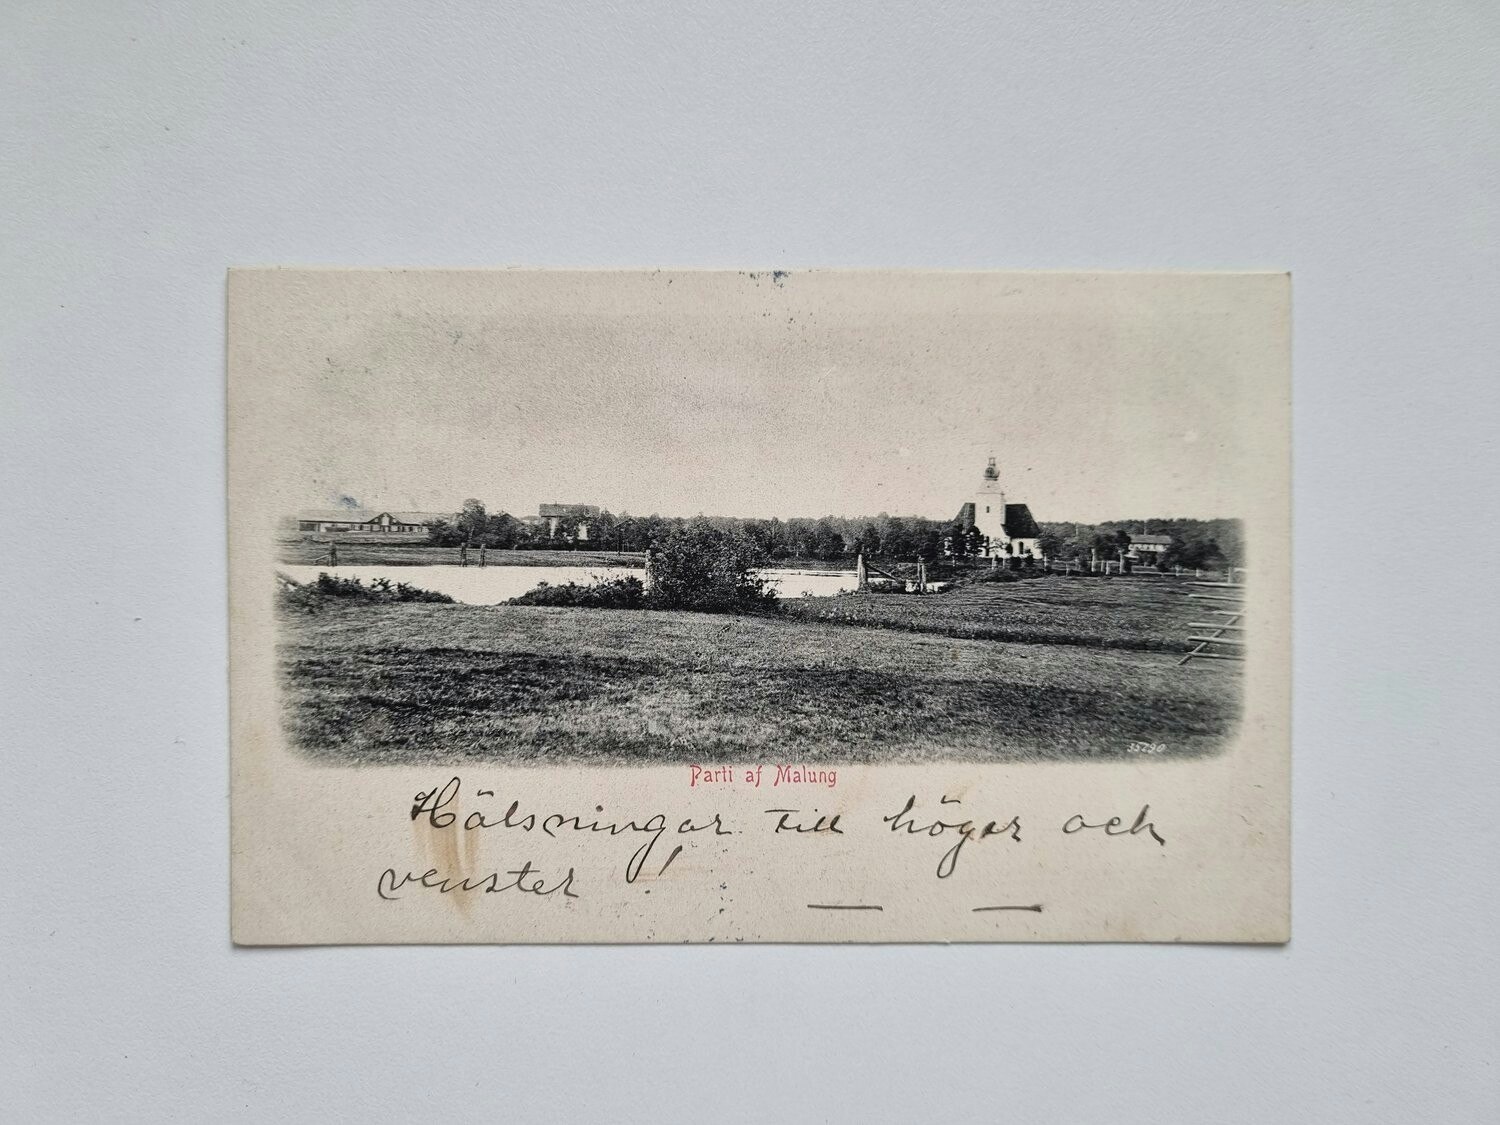 35290
Parti af Malung
Hälsningar till höger och
venster!